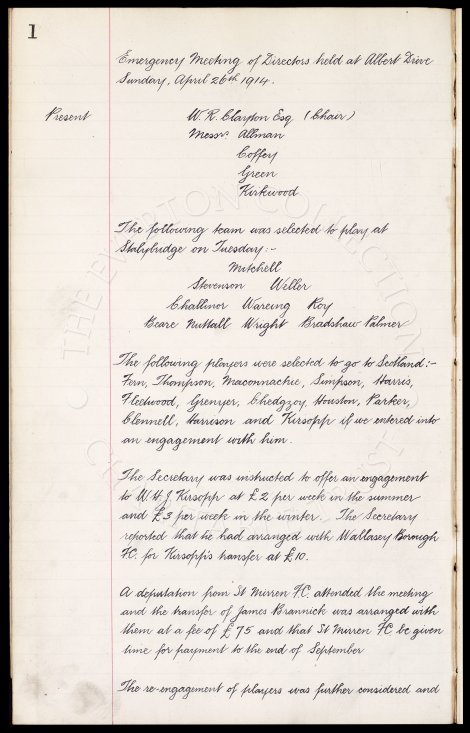 1
Emergency Meeting of Directors held at Albert Drive
Sunday, April 26th 1914.
Present W. R. Clayton Esq (Chair)
Messrs. Allman
Coffey
Green
Kirkwood
The following team was selected to play at
Stalybridge on Tuesday:-
Mitchell
Stevenson Weller
Challinor Wareing Roy
Beare Nuttall Wright Bradshaw Palmer
The following players were selected to go to Scotland:-
Fern, Thompson, Maconnachie, Simpson, Harris,
Fleetwood, Grenyer, Chedgzoy, Houston, Parker,
Clennell, Harrison and Kirsopp if we entered into
an engagement with him.
The Secretary was instructed to offer an engagement
to W.H.J. Kirsopp at £2 per week in the summer
and £3 per week in the winter. The Secretary
reported that he had arranged with Wallasey Borough
F.C. for Kirsopp's transfer at £10.
A deputation from St Mirren F.C. attended the meeting
and the transfer of James Brannick was arranged with
them at a fee of £75 and that St Mirren FC be given
time for payment to the end of September
The re-engagement of players was further considered and
THE EVERTON COLLECTION